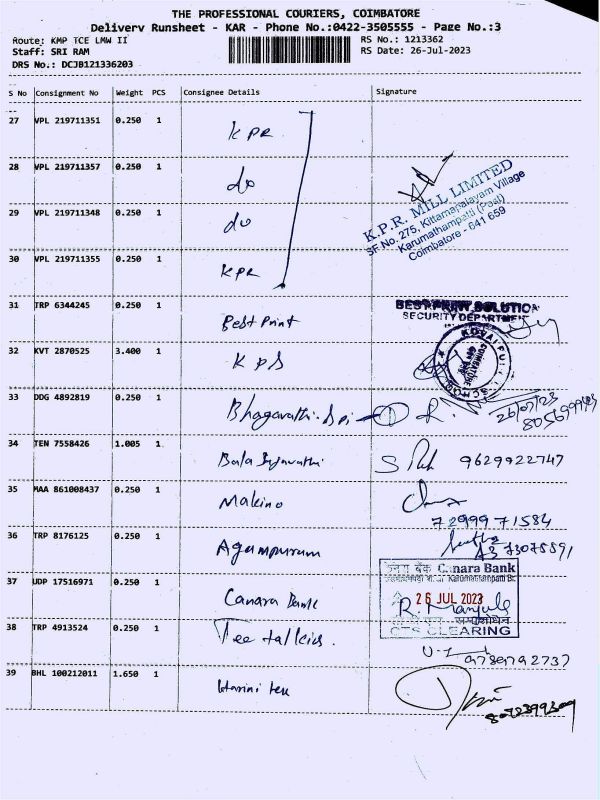 THE PROFESSIONAL COURIERS, COIMBATORE
Delivery Runsheet - KAR - Phone No.:0422-3505555 - Page No.:3
Route: KMP TCE LMW II RS No.: 1213362
Staff: SRI RAM RS Date: 26-Jul-2023
DRS No.: DCJB121336203
S No Consignment No Weight PCS Consignee Details Signature
27 VPL 219711351 0.250 1 KPR
28 VPL 219711357 0.250 1 do
29 VPL 219711348 0.250 1 do
K.P.R. MILL LIMITED
SF No. 275, Kittampalayam Village
Karumathampatti (Post)
Coimbatore - 641 659
30 VPL 219711355 0.250 1 KPR
31 TRP 6344245 0.250 1 Best Print
BEST PRINT SOLUTION
SECURITY DEPARTMENT
32 KVT 2870525 3.400 1 KPS
33 DDG 4892819 0.250 1 Bhagavathi 26/07/23
34 TEN 7558426 1.005 1 Bala 9629922747
35 MAA 861008437 0.250 1 Makino
72999 71584
36 TRP 8176125 0.250 1
37 UDP 17516971 0.250 1 Canara Bank
Canara Bank
26 JUL 2023
R. Manjula
CTS CLEARING
38 TRP 4913524 0.250 1 Tee talkies
39 BHL 100212011 1.650 1 Harini tex